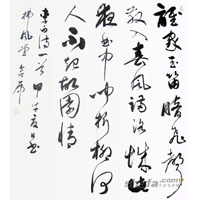 誰家玉笛暗飛聲
散入春風滿洛城此
夜曲中聞折柳何
人不起故園情
李白诗一首甲午夏日書